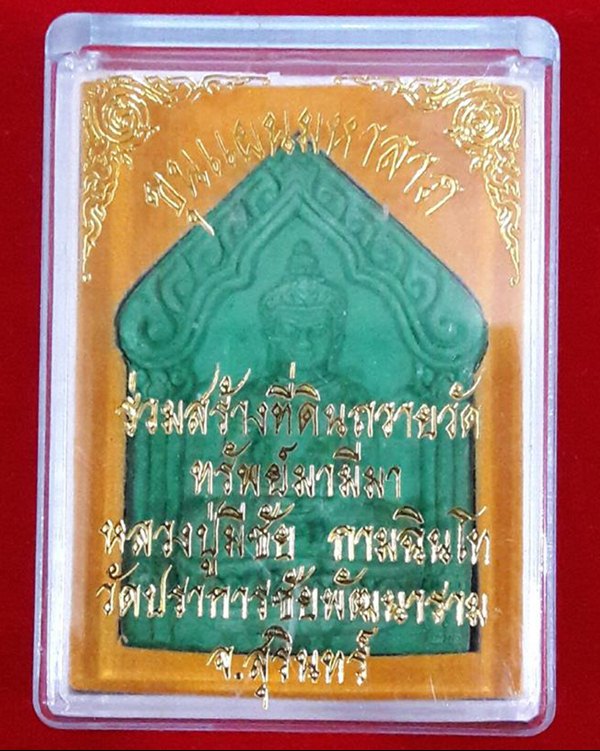 ขุนแผนมหาลาภ
ร่วมสร้างที่ดินถวายวัด
ทรัพย์มามีมา
หลวงปู่มีชัย กามฉินโท
วัดปราการชัยพัฒนาราม
จ.สุรินทร์